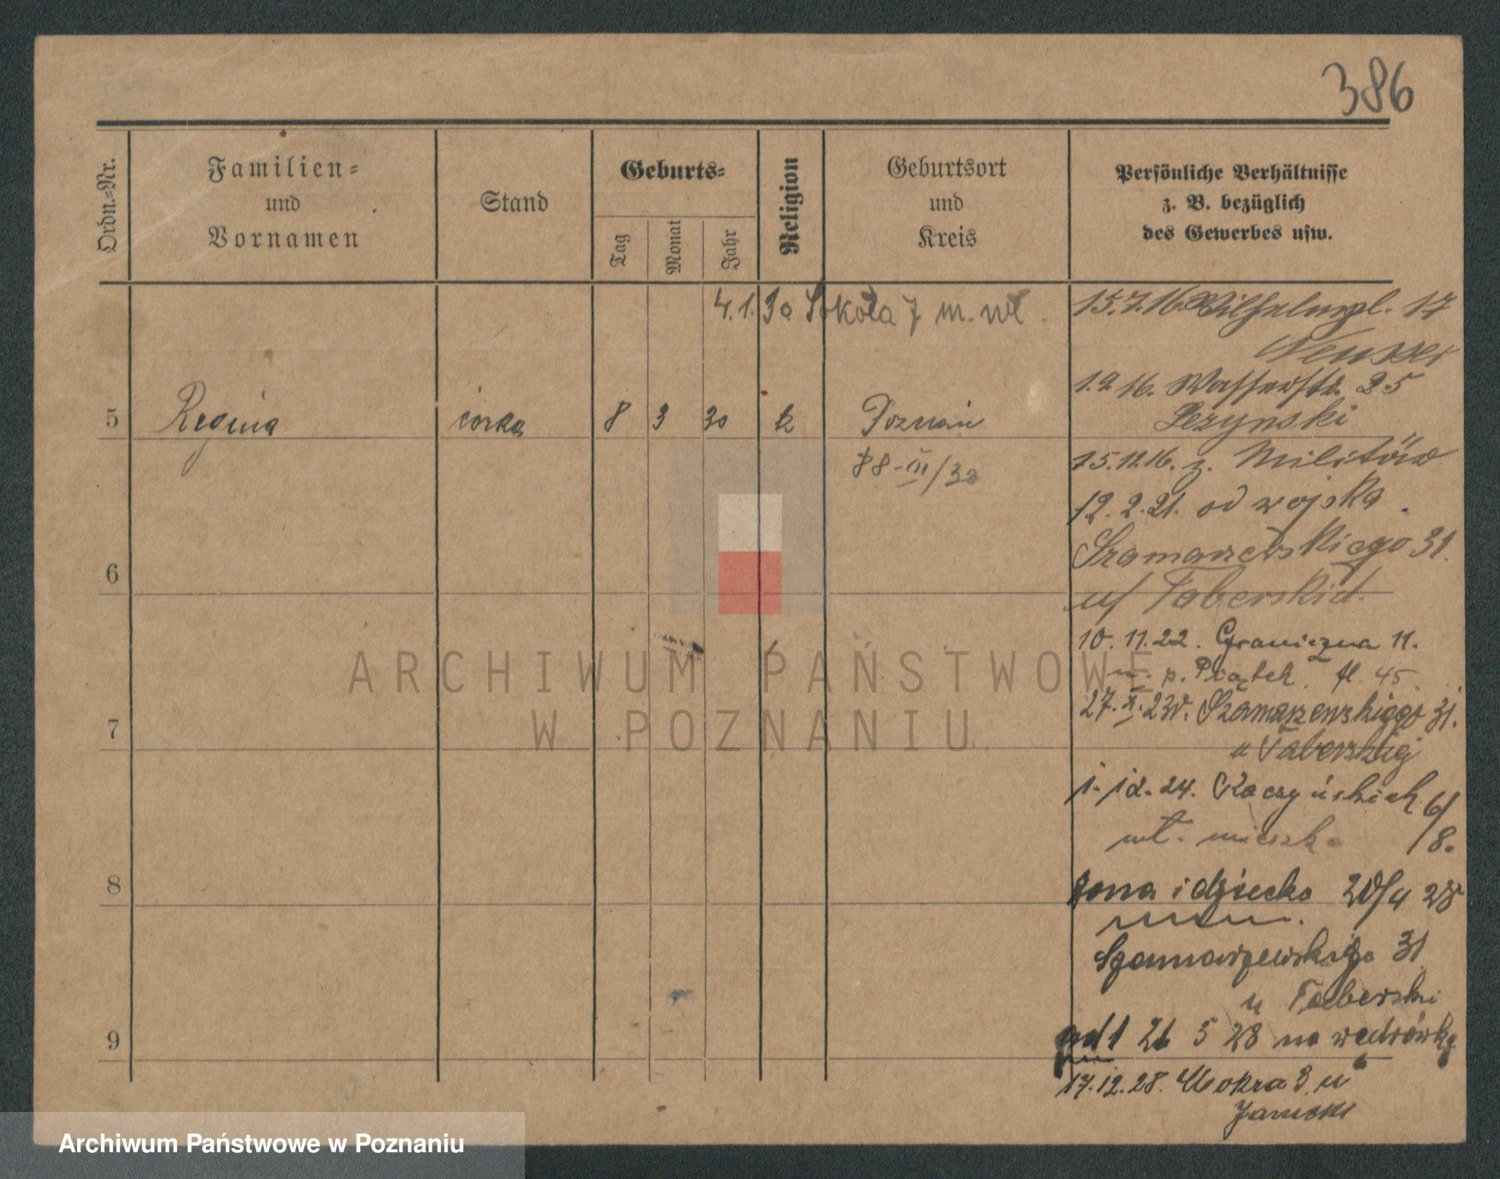 386
Ordn.-Nr.
Familien-
und
Vornamen
Stand
Geburts-
Tag
Monat
Jahr
Religion
Geburtsort
und
Kreis
Persönliche Verhältnisse
z. B. bezüglich
des Gewerbes usw.
4.1.30 Sokoła 7 m. wł.
15.7.16. Wilhelmpl. 17
1.9 16. Wasserstr. 25
5 Regina córka 8 3 30 k Poznań
8-III/30
15.12.16. z. Militär
12.2.21. od wojska.
Szamarzewskiego 31.
u/ Taberskich
6
10.11.22. Graniczna 11.
p. Piątek
27.X.23r. Szamarzewskiego 31.
u Taberskiej
7
1.12.24. Raczyńskich 6/8.
wł. mieszk.
8
żona i dziecko 20/4 28
Szamarzewskiego 31
u Taberski
9
ad 1 26 5 28 na wędrówkę
17.12.28. Mokra 3 u
ARCHIWUM PAŃSTWOWE
W POZNANIU
Archiwum Państwowe w Poznaniu